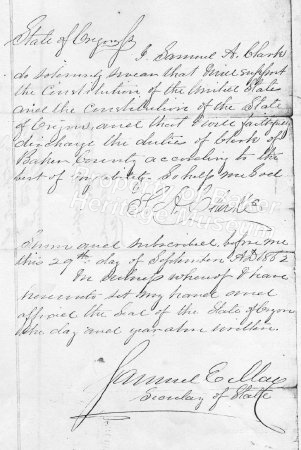 State of Oregon ss
I Samuel A. Clark
do solemnly swear that I will support
the Constitution of the United States
and the Constitution of the State
of Oregon, and that I will faithfully
discharge the duties of Clerk of
Baker County according to the
best of my ability. So help me God
S. A. Clarke
Sworn and subscribed before me
this 29th day of September A.D. 1862
In witness whereof I have
hereunto set my hand and
affixed the Seal of the State of Oregon
the day and year above written.
Samuel E. May
Secretary of State